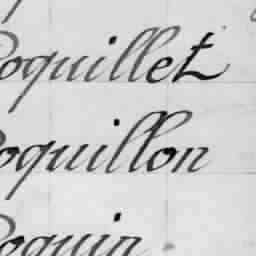 Poquillet
Poquillon
Poquin